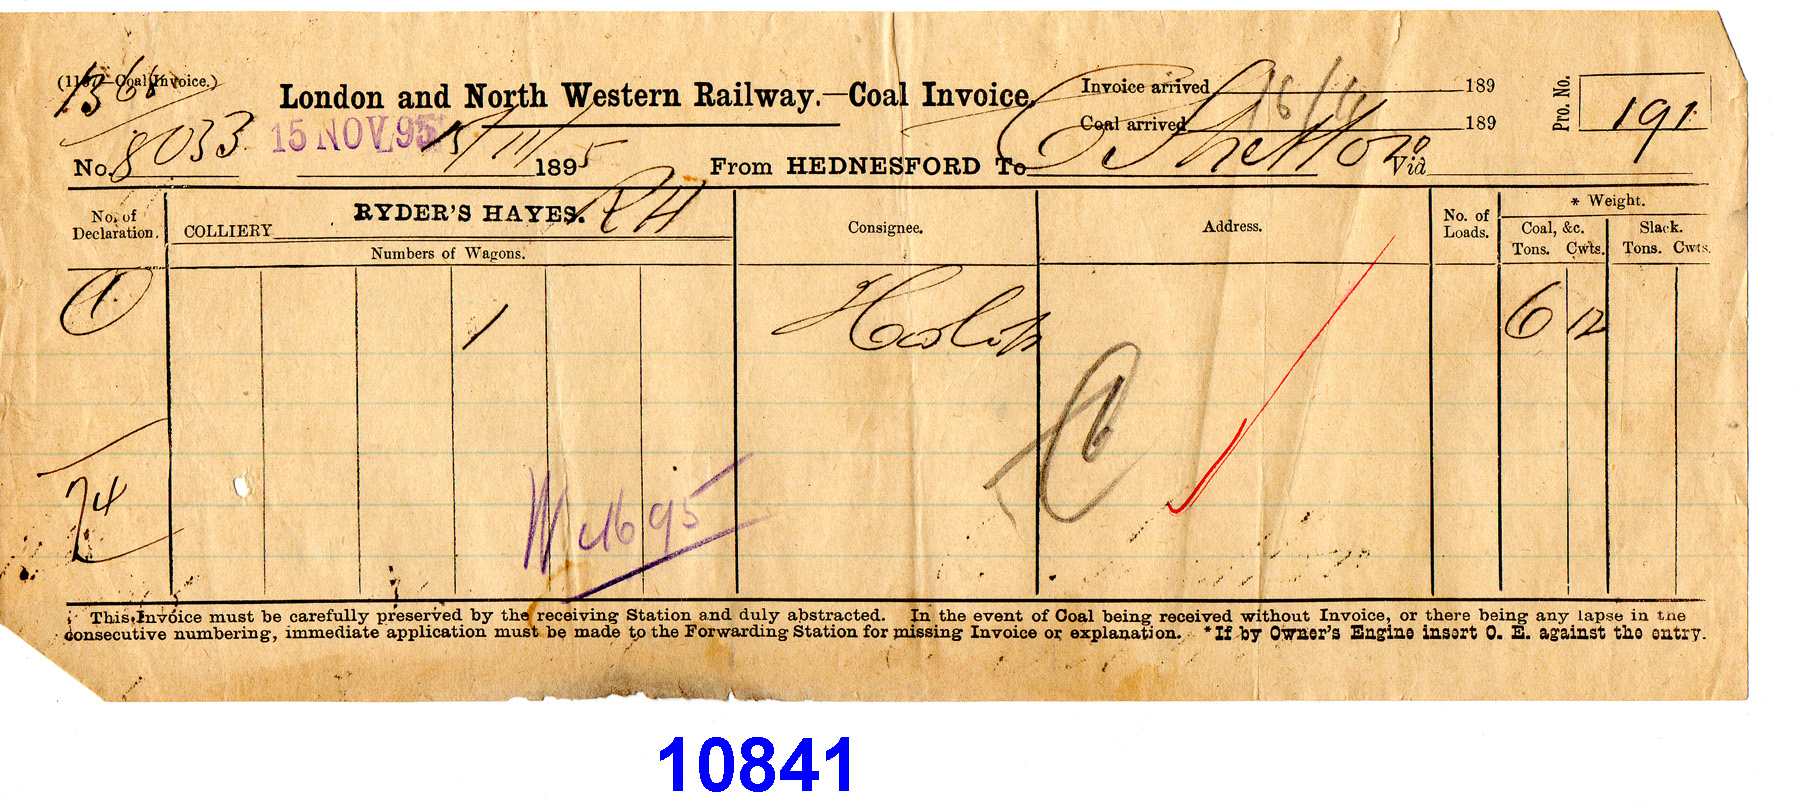 (1167—Coal Invoice.)
London and North Western Railway.—Coal Invoice.
Invoice arrived 189
Coal arrived 16/11 189
Pro. No. 191
No. 8033 15 NOV.95 15/11/1895 From HEDNESFORD To C Stretton Viâ
No. of Declaration.
COLLIERY RYDER'S HAYES. RH
Numbers of Wagons.
Consignee.
Address.
No. of Loads.
* Weight.
Coal, &c.
Tons. Cwts.
Slack.
Tons. Cwts.
1 1 6 12
74
This Invoice must be carefully preserved by the receiving Station and duly abstracted. In the event of Coal being received without Invoice, or there being any lapse in the
consecutive numbering, immediate application must be made to the Forwarding Station for missing Invoice or explanation. *If by Owner's Engine insert O. E. against the entry.
10841